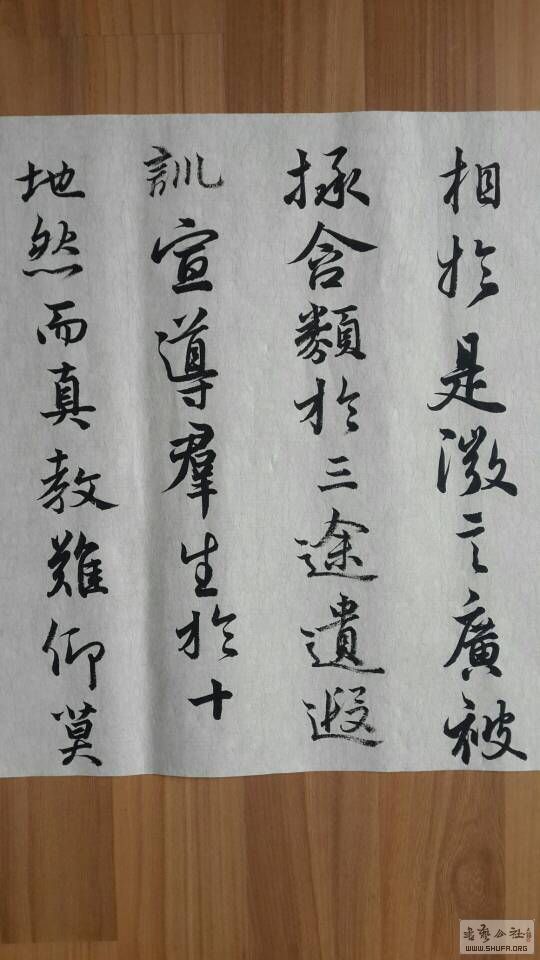 相於是微言廣被
拯含類於三途遺遐
訓宣導羣生於十
地然而真教難仰莫
书艺公社
WWW.SHUFA.ORG